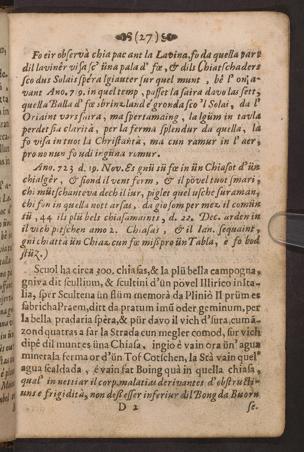 (27)
Fo eir observà chia pac ant la Lavina, fo da quella part
dil lavinêr visa sc' ûna pala d' fœ, & dils Chiatschaders
sco dus Solais spêra lgiauter sur quel munt, bê l' on, a-
vant Ano. 79. in quel temp, passet la saira davo las sett,
quella Balla d' fœ sbrinzland è gronda sco 'l Solai, da l'
Oriaint vers saira, ma spertamaing, la lgüm in tavla
perdet sia clarità, per la ferma splendur da quella, la
fo visa in tuot la Christiantà, ma cun ramur in l' aer,
pro no nun fo udi ingüna rumur.
Ano. 723 d. 19. Nov. Es gnü sü fœ in ün Chiasot d'ün
chialgêr, & siond il vent ferm, & il povel tuot smari,
chi mütschanteva dech il iur, pigler quel usche suraman,
chi fon in quella nott arsas, da gio som per mez il comün
sü, 44 ils plü bels chiasamaints, d. 22. Dec. arden in
il vich pitschen amo 2. Chiasas, & il Ian. sequaint,
gni chiattà ün Chiaz cun fœ miss pro ün Tabla, e fo bod
stüz.)
Scuol ha circa 300. chiasas, & la plü bella campogna,
gniva dit scullium, & scultini d'ün povel Illirico in Ita-
lia, sper Scultena ün flüm memorà da Plinio Il prüm es
fabrichà Præm, ditt da pratum imû oder geminum, per
la bella pradaria spêra, & pür davo il vich d'sura, cumâ-
zond quatras a far la Strada cun megler comod, sur vich
dipè dil munt es üna Chiasa, ingio è vain ora ün' agua
minerala ferm a or d'ün Tof Cotschen, la Stà vain quel'
agua scaldada, è vain fat Boing quà in quella chiasa,
qual' in nettiar il corp, malatias derivantes d'obstructi-
uns e frigidità, non des esser inferiur dil Bong da Buorm
D 2 se.